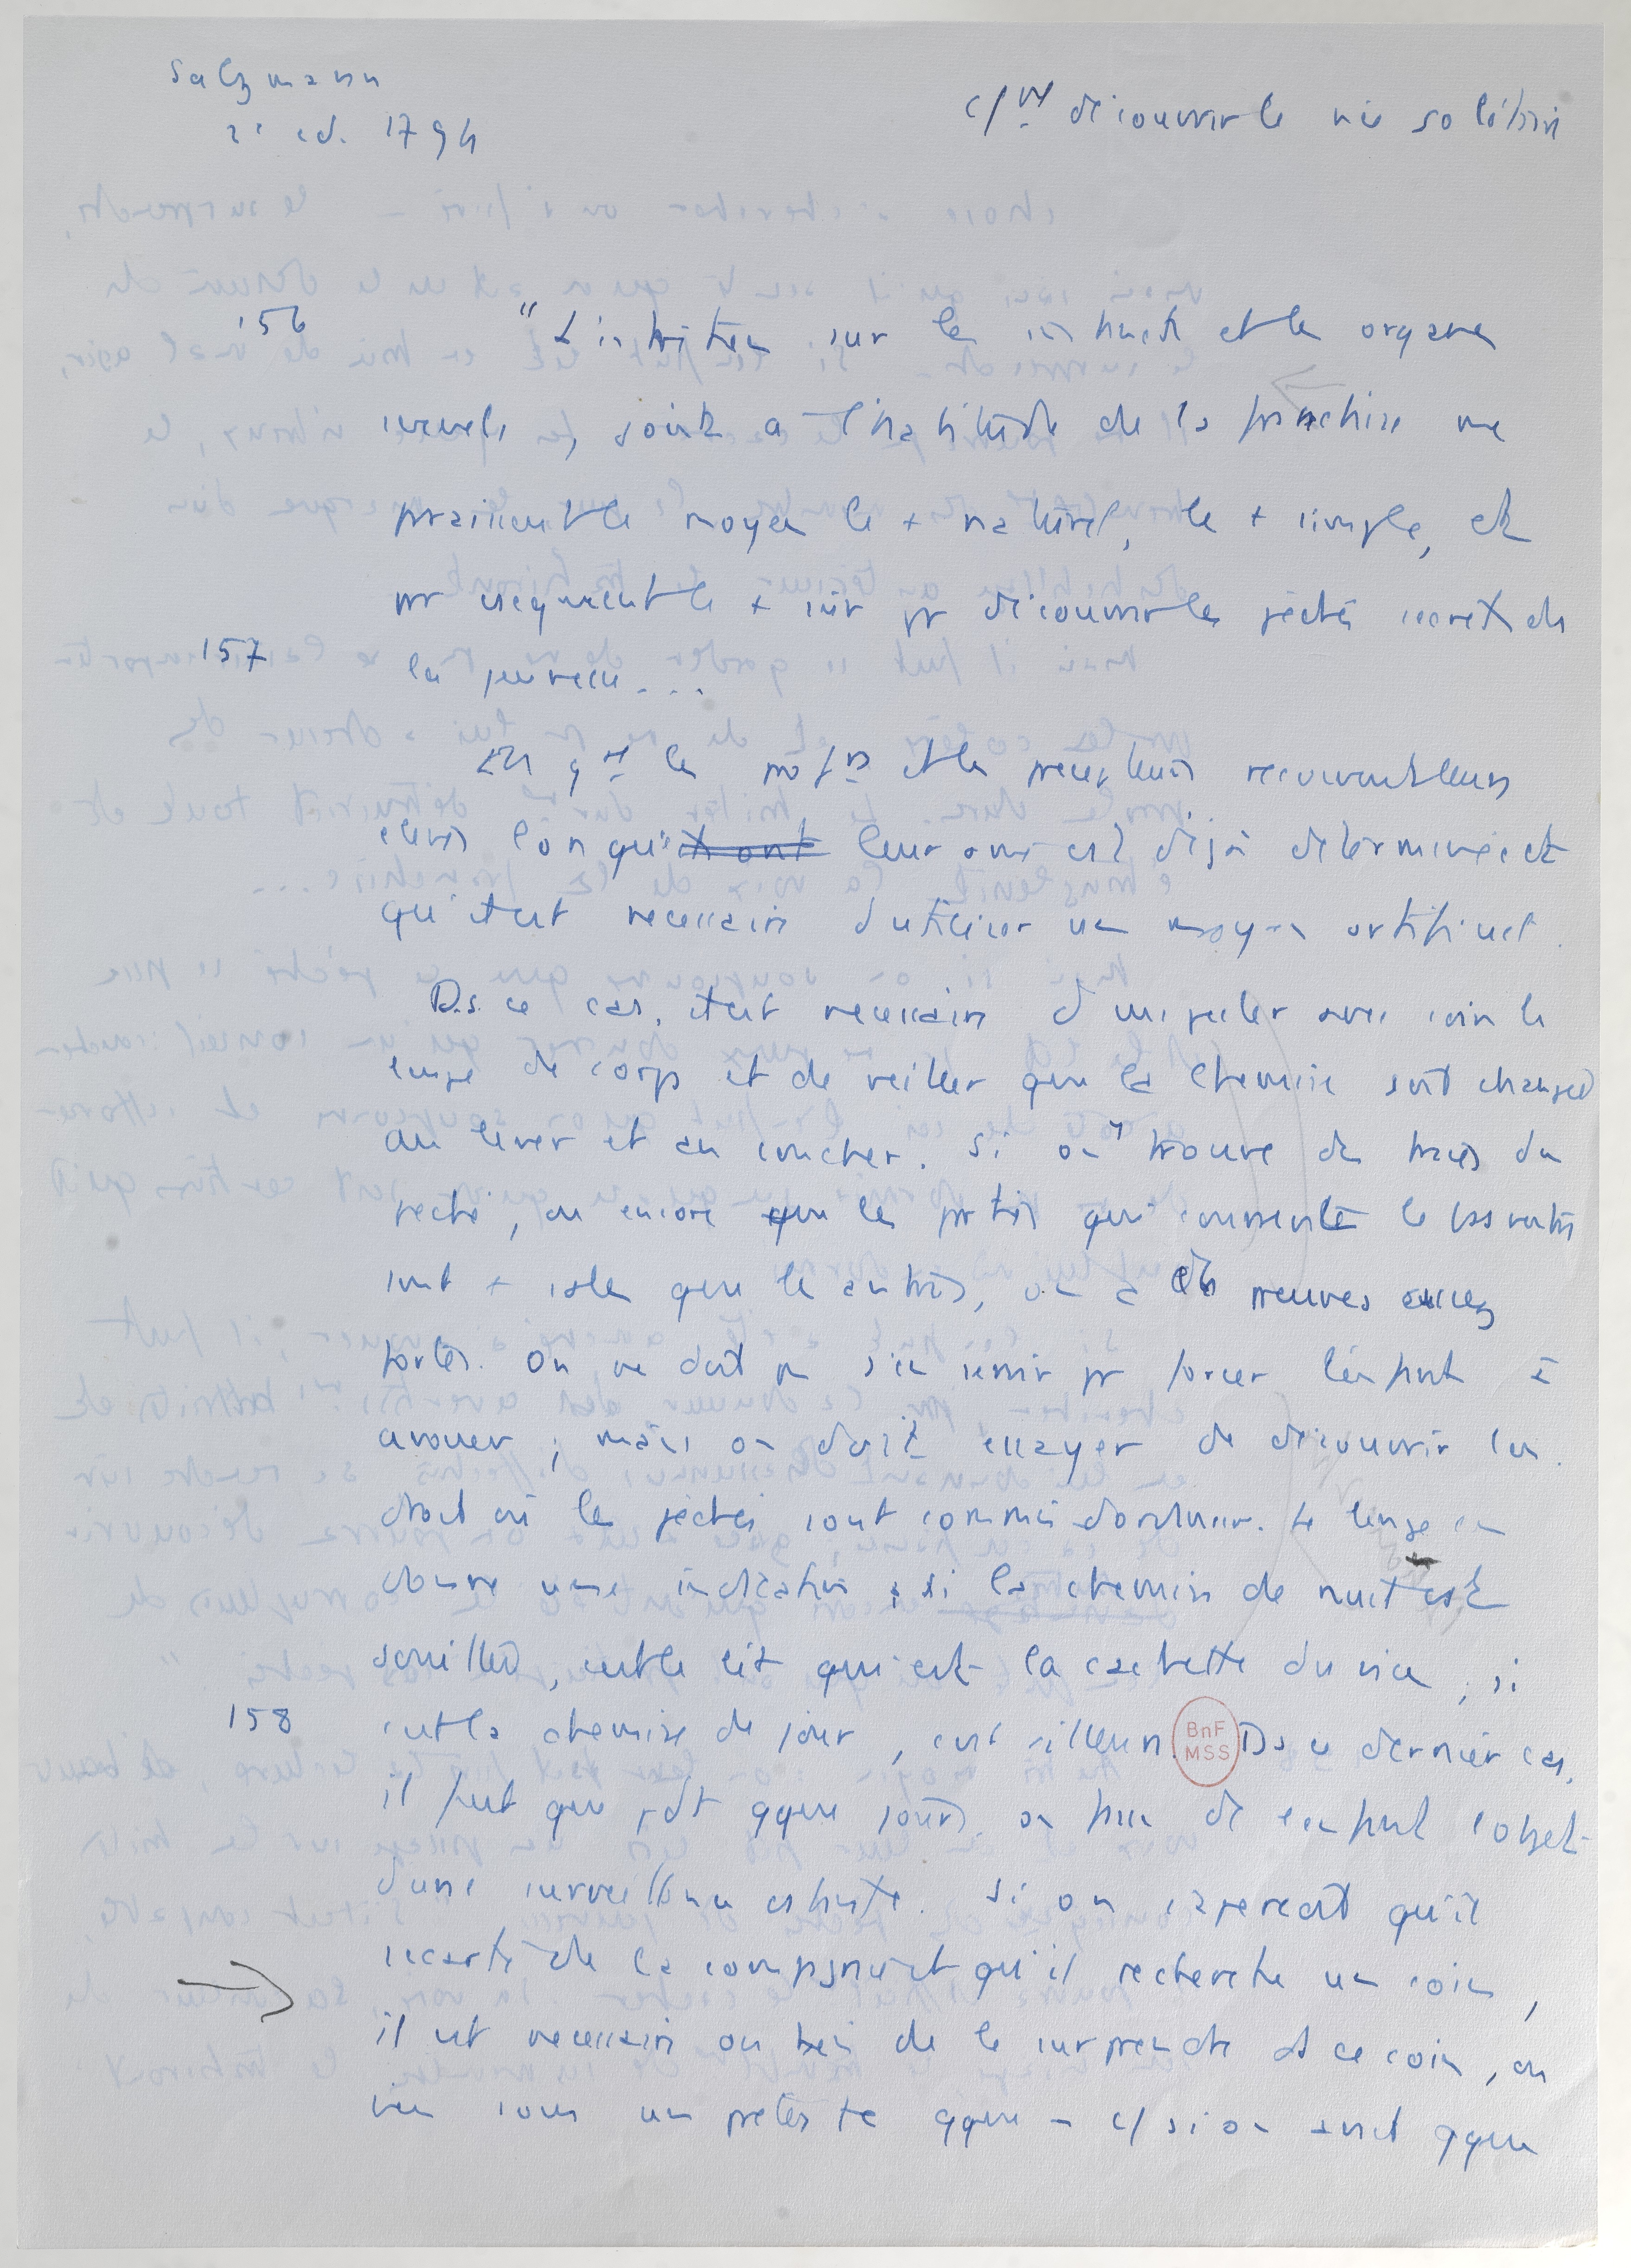 Salzmann
2e éd. 1794
c/nt découvrir le vice solitaire
156 "L'instruction sur les instincts et les organes
sexuels, jointe à l'habitude de la franchise me
paraissent le moyen le + naturel, le + simple, et
par conséquent le + sûr pr découvrir les péchés secrets de
157 la jeunesse...
En gal les profs et les précepteurs reçoivent leurs
élèves lorsque leur âme est déjà déterminée et
qu'il est nécessaire d'utiliser un moyen artificiel.
Ds ce cas, il est nécessaire d'inspecter avec soin le
linge de corps et de veiller que la chemise soit changée
au lever et au coucher. Si on trouve des traces du
péché, ou encore que les parties qui couvrent le bas ventre
sont + sales que les autres, on a des preuves assez
fortes. On ne doit pas s'en servir pr forcer l'enfant à
avouer ; mais on doit essayer de découvrir l'en
droit où les péchés sont commis d'ordinaire. Le linge en
donne une indication ; si la chemise de nuit est
souillée, c'est le lit qui est la cachette du vice, si
158 c'est la chemise de jour, c'est ailleurs. Ds ce dernier cas,
BnF
MSS
il faut que pdt qque jours on fasse de l'enfant l'objet
d'une surveillance étroite. Si on s'aperçoit qu'il
s'écarte de la compagnie et qu'il recherche un coin,
il est nécessaire ou bien de le surprendre ds ce coin, ou
bien sous un prétexte qque – c/ si on avait qque